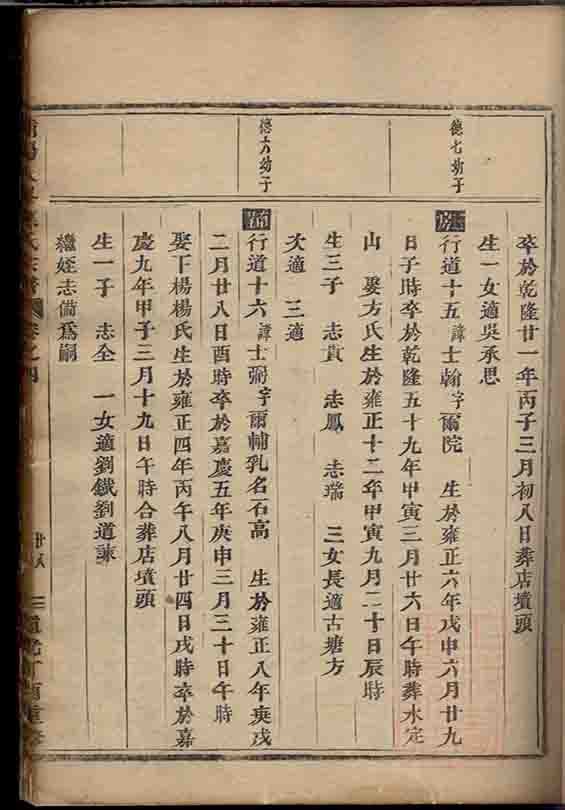 卒於乾隆廿一年丙子三月初八日葬店墳頭
生一女適吳承思
德七幼子
行道十五諱士翰字爾院 生於雍正六年戊申六月廿九
日子時卒於乾隆五十九年甲寅三月廿六日午時葬水定
山 娶方氏生於雍正十二年甲寅九月二十日辰時
生三子 志貴 志鳳 志瑞 三女長適古塘方
次適 三適
德六幼子
行道十六諱士弼字爾輔乳名石高 生於雍正八年庚戌
二月廿八日酉時卒於嘉慶五年庚申三月三十日午時
娶下楊楊氏生於雍正四年丙午八月廿四日戌時卒於嘉
慶九年甲子三月十九日午時合葬店墳頭
生一子 志全 一女適劉鐵劉道諫
繼姪志備為嗣
氏宗譜 卷之四 廿八 道光丁酉重修